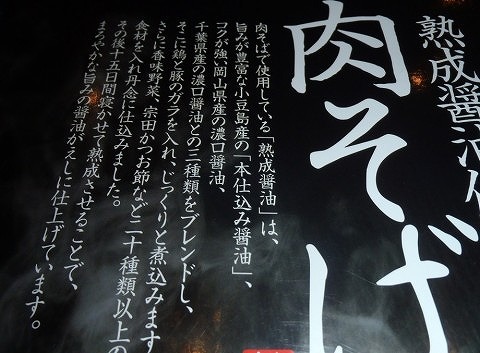 熟成醤油
肉そば
肉そばで使用している「熟成醤油」は、
旨みが豊富な小豆島産の「本仕込み醤油」、
コクが強い岡山県産の濃口醤油、
千葉県産の濃口醤油との三種類をブレンドし、
そこに鶏と豚のガラを入れ、じっくりと煮込みます
さらに香味野菜、宗田かつお節など二十種類以上の
食材を入れ丹念に仕込みました。
その後十五日間寝かせて熟成させることで、
まろやかな旨みの醤油がえしに仕上げています。